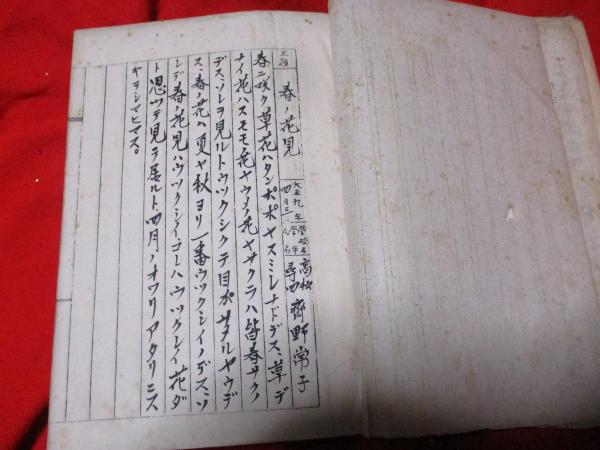 文題 春ノ花見
大正九年 四月三 學校名 學年 氏名 高松 尋四 齊野常子
春ニ咲ク草花ハタンポポヤスミレナドデス、草デ
ナイ花ハスモモノ花ヤウメノ花ヤサクラハ皆春サクノ
デス、ソレヲ見ルトウツクシクテ目ガサメルヤウデ
ス、春ノ花ハ夏ヤ秋ヨリ一番ウツクシイノデス、ソ
レデ春ノ花見ハウツクシイコトハウツクシイ花ダ
ト思ツテ見テ居ルト四月ノオワリアタリニス
ギテシマヒマス。